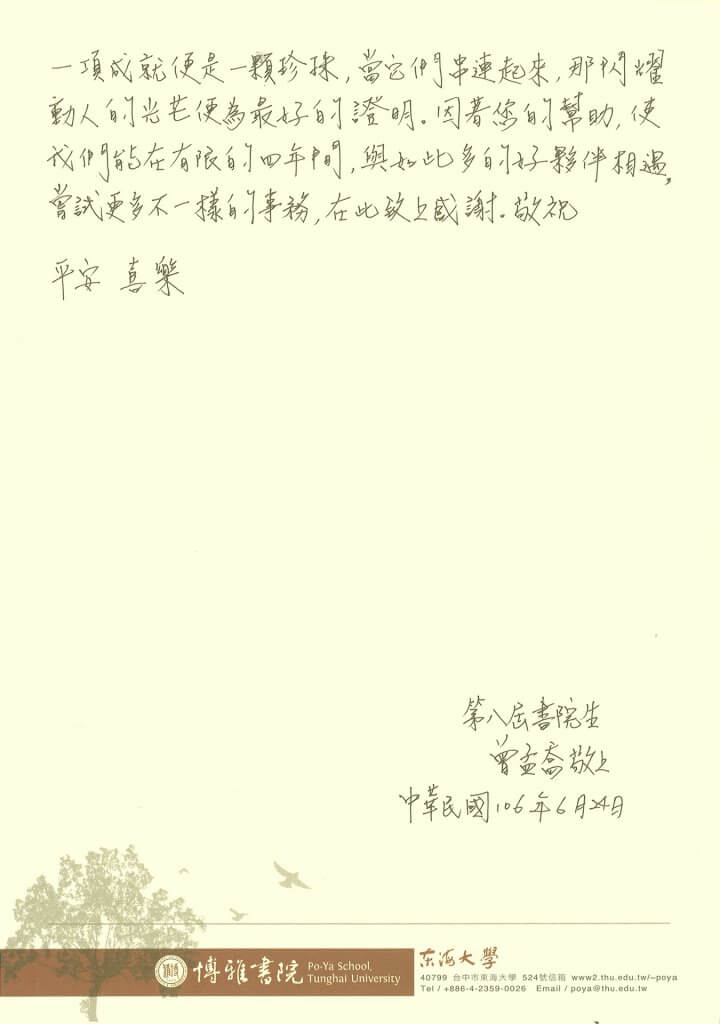 一項成就便是一顆珍珠，當它們串連起來，那閃耀
動人的光芒便為最好的證明。因著您的幫助，使
我們能在有限的四年間，與如此多的好夥伴相遇，
嘗試更多不一樣的事務，在此致上感謝。敬祝
平安 喜樂
第八屆書院生
曾孟喬敬上
中華民國106年6月24日
博雅書院 Po-Ya School, Tunghai University
東海大學
40799 台中市東海大學 524號信箱 www2.thu.edu.tw/~poya
Tel / +886-4-2359-0026 Email / poya@thu.edu.tw